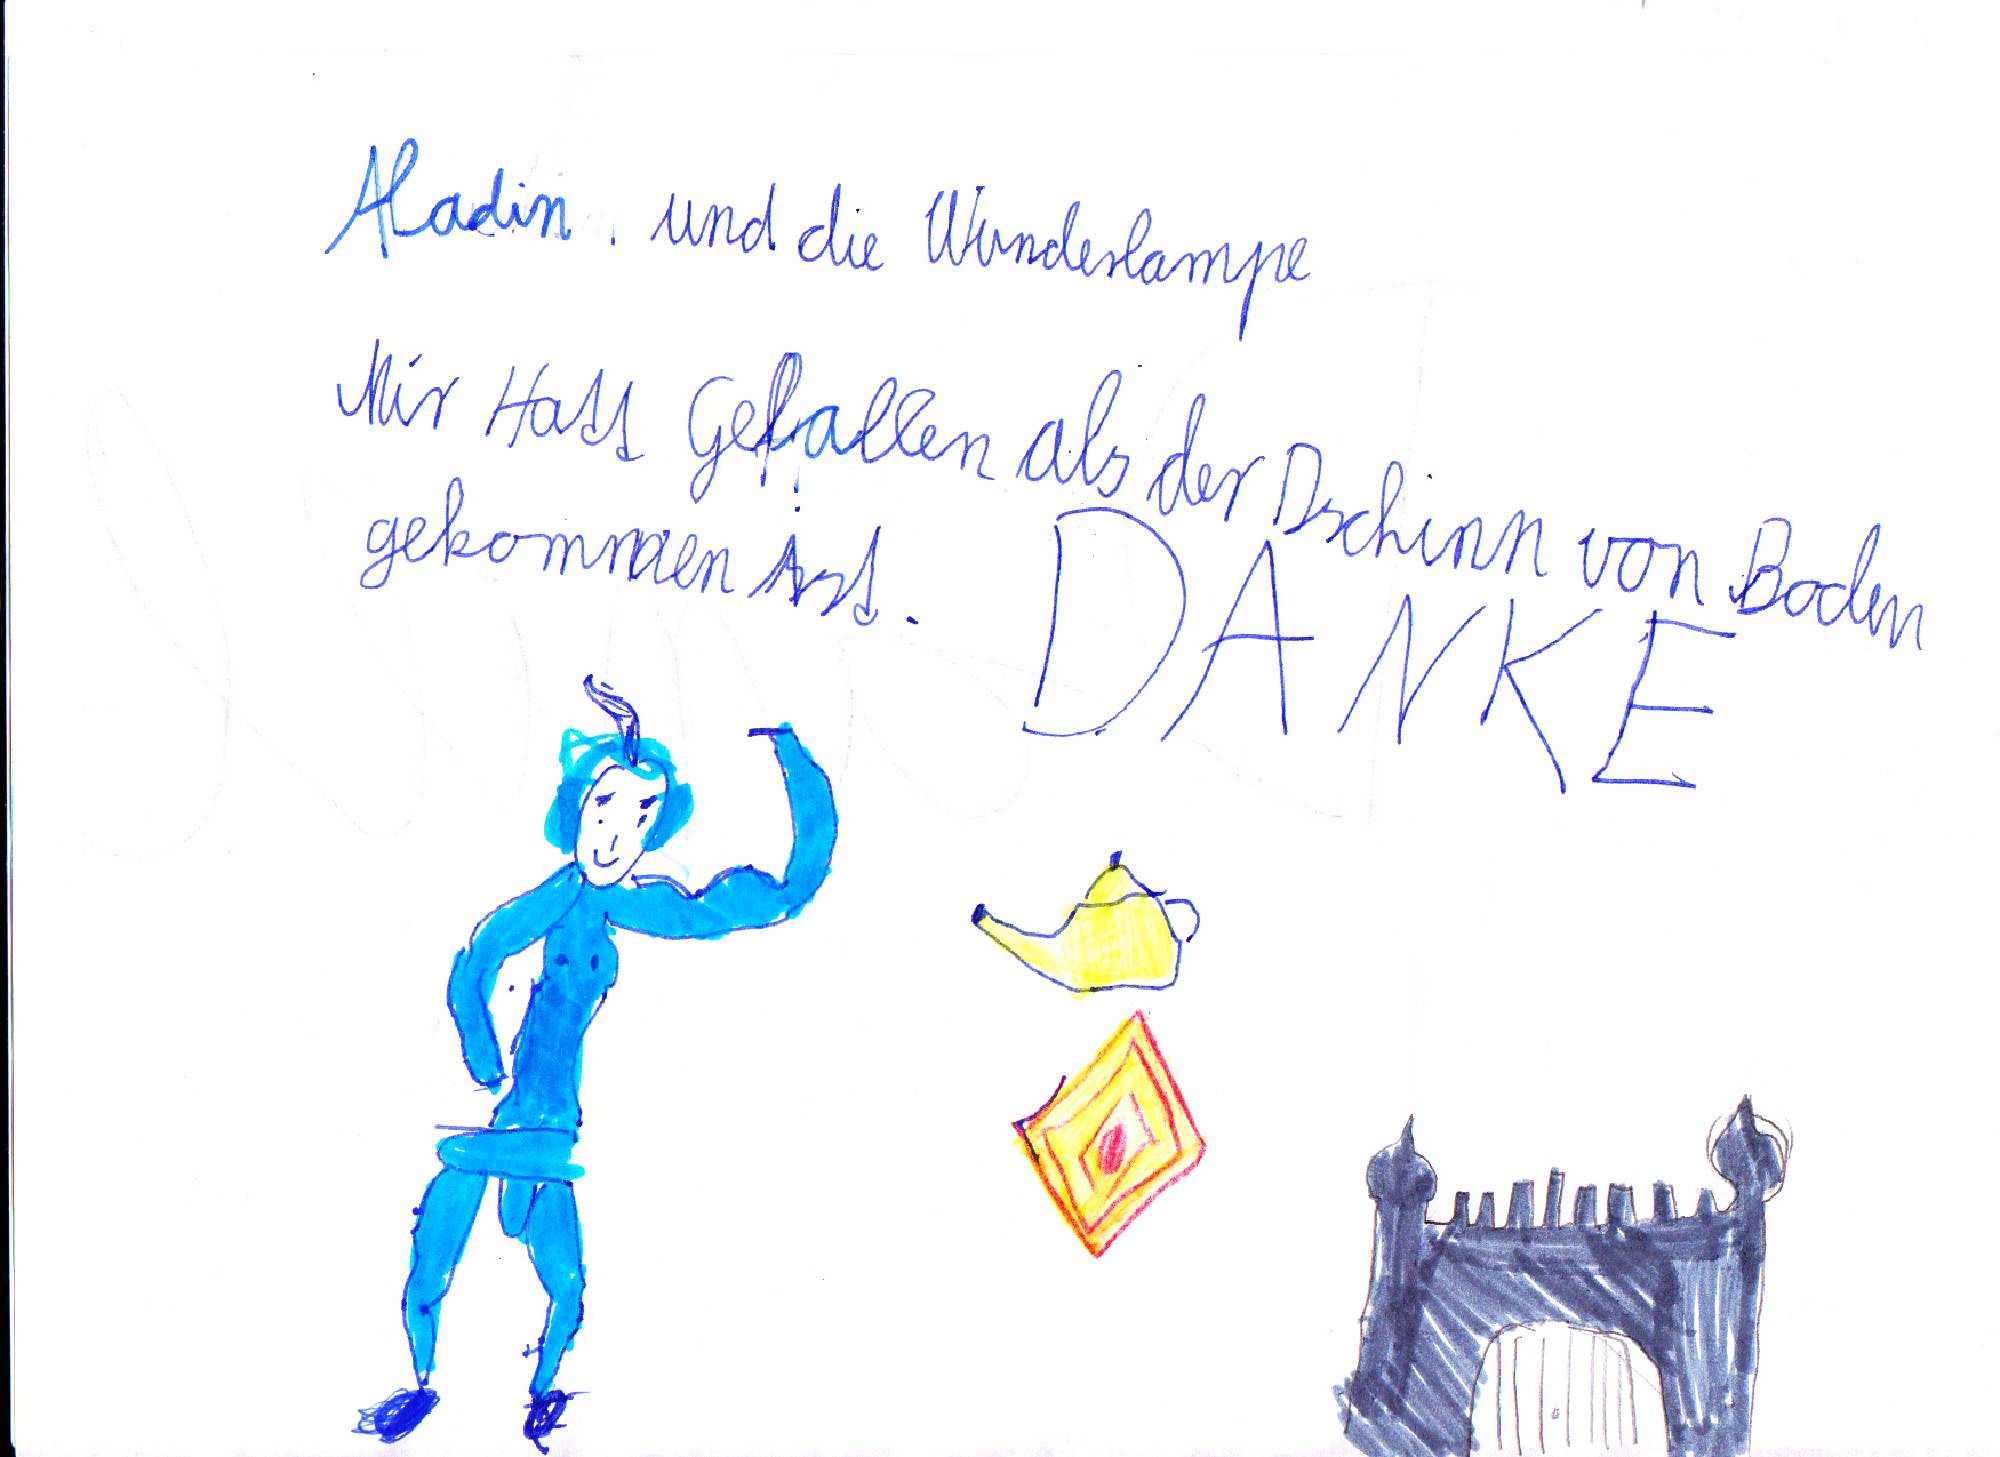 Aladin und die Wunderlampe
Mir Hatt Gefallen als der Dschinn von Boden
gekommen ist.
DANKE